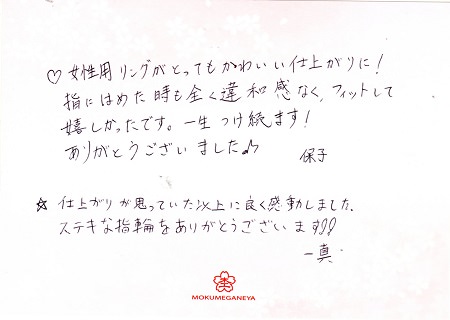 ♡女性用リングがとってもかわいい仕上がりに！
指にはめた時も全く違和感なく、フィットして
嬉しかったです。一生つけ続けます！
ありがとうございました♪
保子
☆仕上がりが思っていた以上に良く感動しました。
ステキな指輪をありがとうございます!!
一真
MOKUMEGANEYA